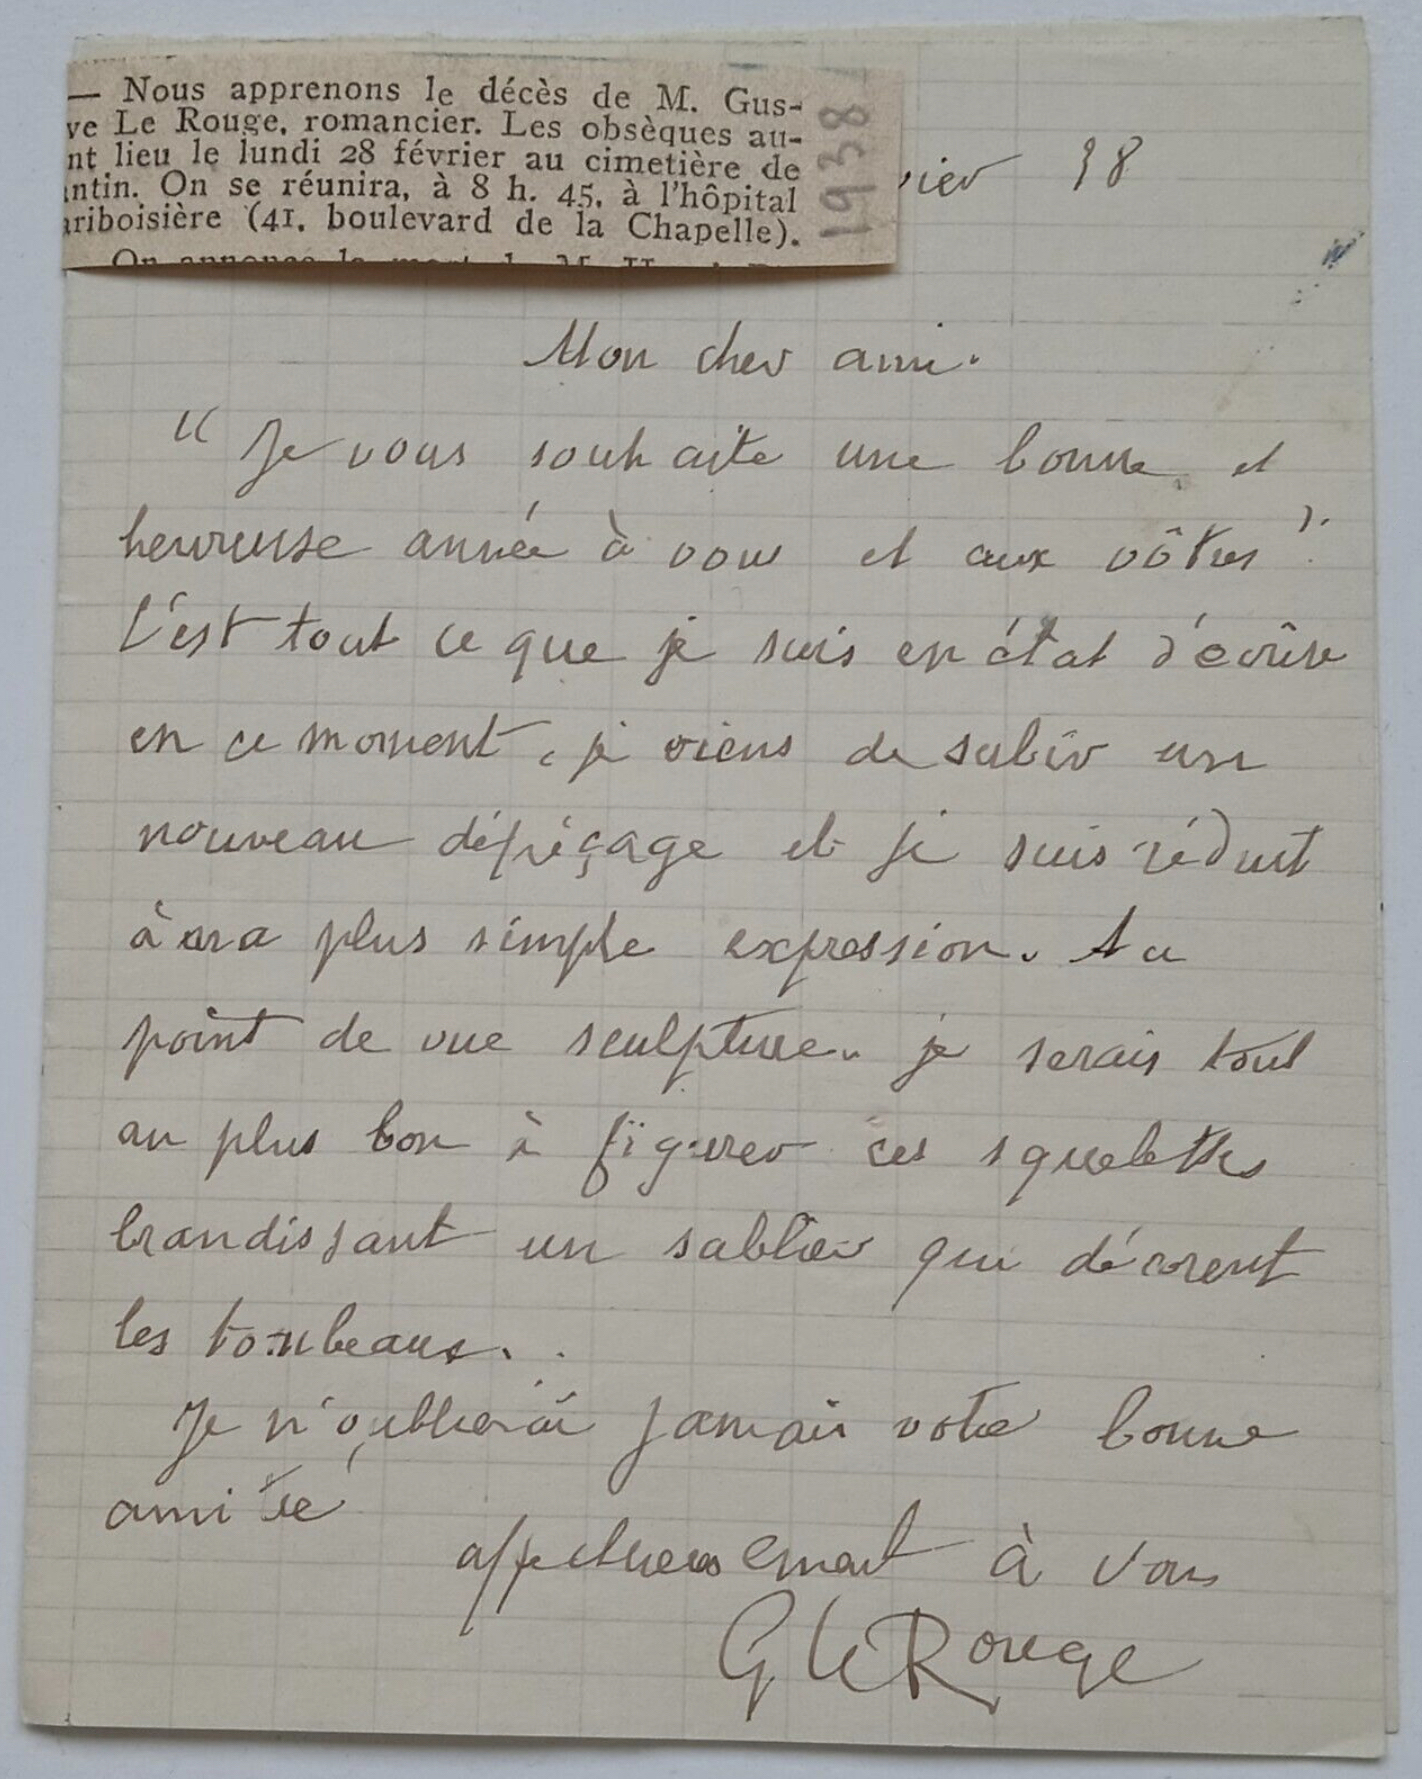 — Nous apprenons le décès de M. Gus-
ve Le Rouge, romancier. Les obsèques au-
nt lieu le lundi 28 février au cimetière de
antin. On se réunira, à 8 h. 45, à l'hôpital
ariboisière (41, boulevard de la Chapelle).
On annonce la mort de M. H
1938
vier 38
Mon cher ami.
“ Je vous souhaite une bonne et
heureuse année à vous et aux vôtres ”.
C'est tout ce que je suis en état d'écrire
en ce moment, je viens de subir un
nouveau dépéçage et je suis réduit
à ma plus simple expression. Au
point de vue sculpture. je serais tout
au plus bon à figurer ces squelettes
brandissant un sablier qui décorent
les tombeaux.
Je n'oublierai jamais votre bonne
amitié
affectueusement à vous
G Le Rouge